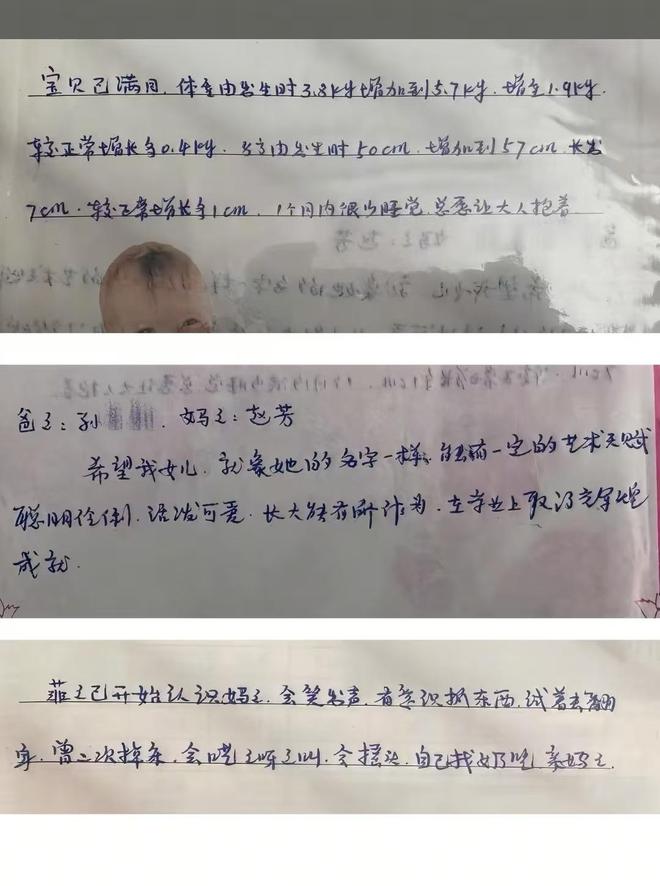 宝贝已满月，体重由出生时3.8kg增加到5.7kg，增重1.9kg，
较正常增长多0.4kg，身高由出生时50cm，增加到57cm，长出
7cm，较正常增长多1cm，1个月内很少睡觉，总愿让大人抱着
爸爸：孙 妈妈：赵芳
希望我女儿，就象她的名字一样，能有一定的艺术天赋
聪明伶俐，活泼可爱，长大能有所作为，在学业上取得辉煌
成就.
菲菲已开始认识妈妈，会笑出声，有意识抓东西，试着去翻
身，曾二次掉床，会咿呀叫，会摇头，自己找奶吃，亲妈妈.